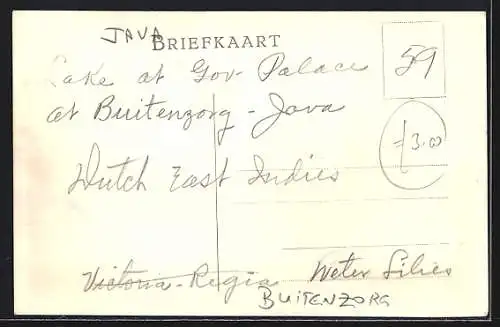 JAVA
BRIEFKAART
59
Lake at Gov. Palace
at Buitenzorg - Java
3.00
Dutch East Indies
Victoria - Regia Weter Lilies
BUITENZORG